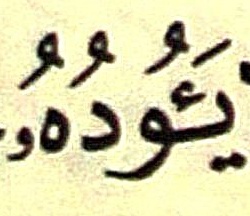 يَئُودُهُۥ